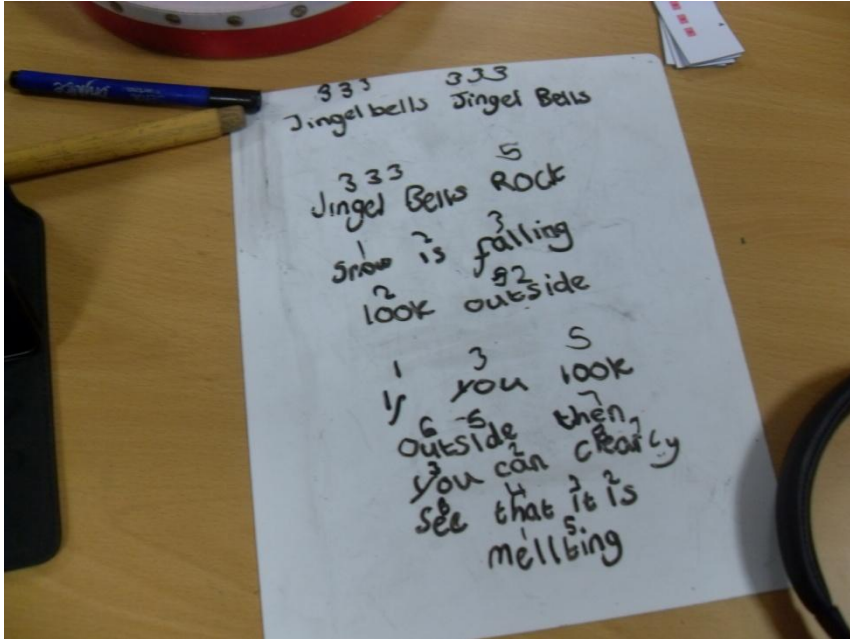 3 3 3 3 3 3
Jingel bells Jingel Bells
3 3 3 5
Jingel Bells Rock
1 2 3
Snow is falling
2 5 2
look outside
1 3 5
If you look
6 5 7
outside then
3 2 8 7
you can clearly
6 4 3 2
see that it is
1 5
mellting